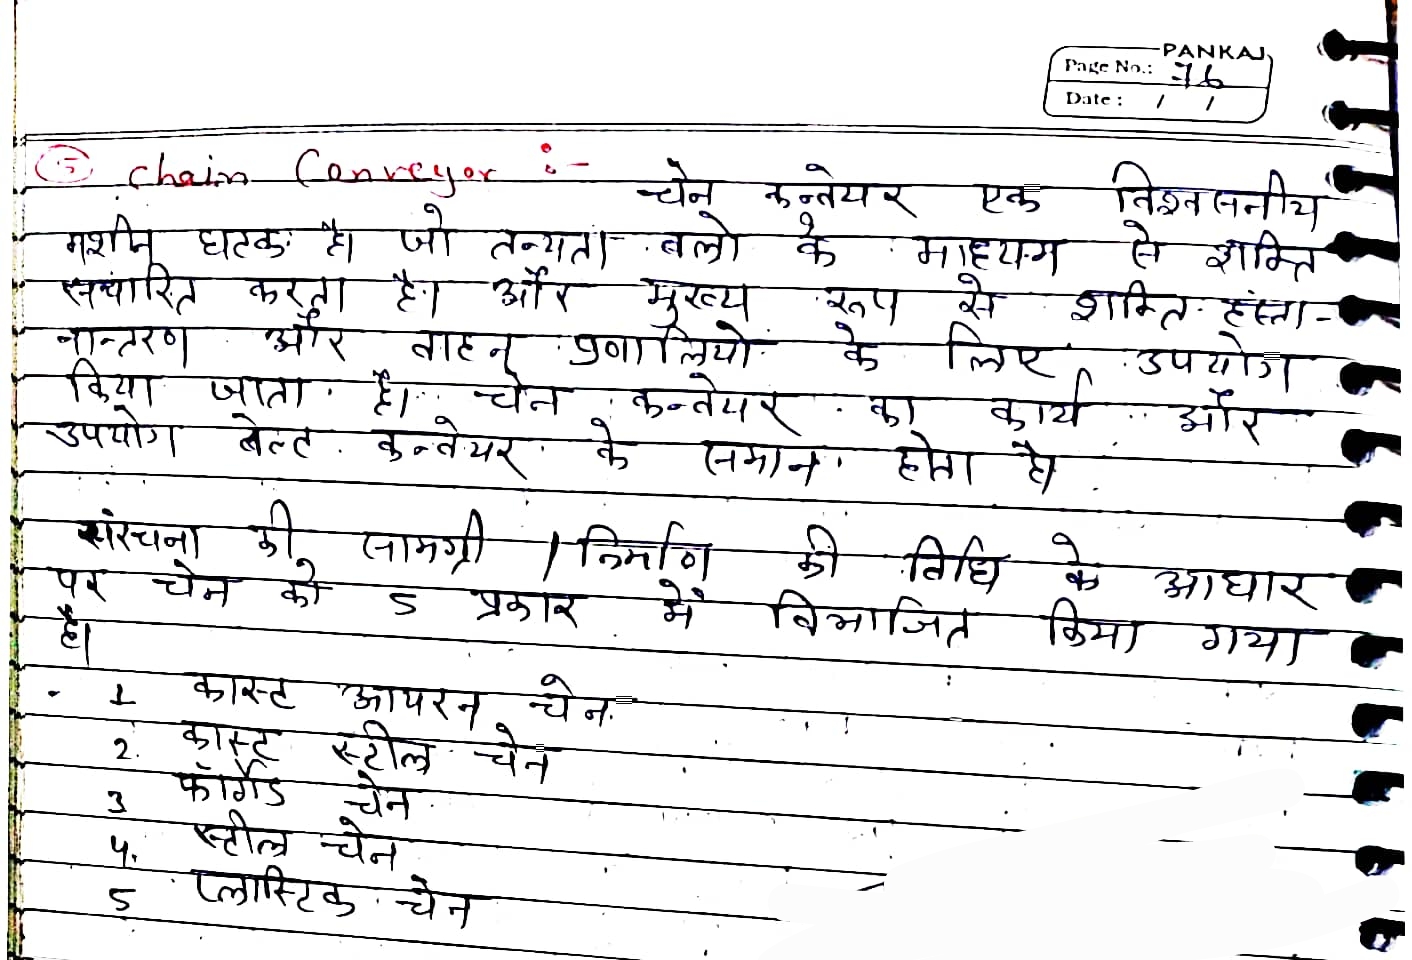 PANKAJ
Page No.: 76
Date : / /
5 Chain Conveyor :-
चेन कन्वेयर एक विश्वसनीय
मशीन घटक है। जो तन्यता बलो के माध्यम से शक्ति
संचारित करता है। और मुख्य रूप से शक्ति हस्ता-
नान्तरण और वाहन प्रणालियो के लिए उपयोग
किया जाता है। चेन कन्वेयर का कार्य और
उपयोग बेल्ट कन्वेयर के समान होता है।
संरचना की सामग्री / निर्माण की विधि के आधार
पर चेन को 5 प्रकार में विभाजित किया गया
है।
1 कास्ट आयरन चेन
2. कास्ट स्टील चेन
3 फॉर्गेड चेन
4. स्टील चेन
5 प्लास्टिक चेन